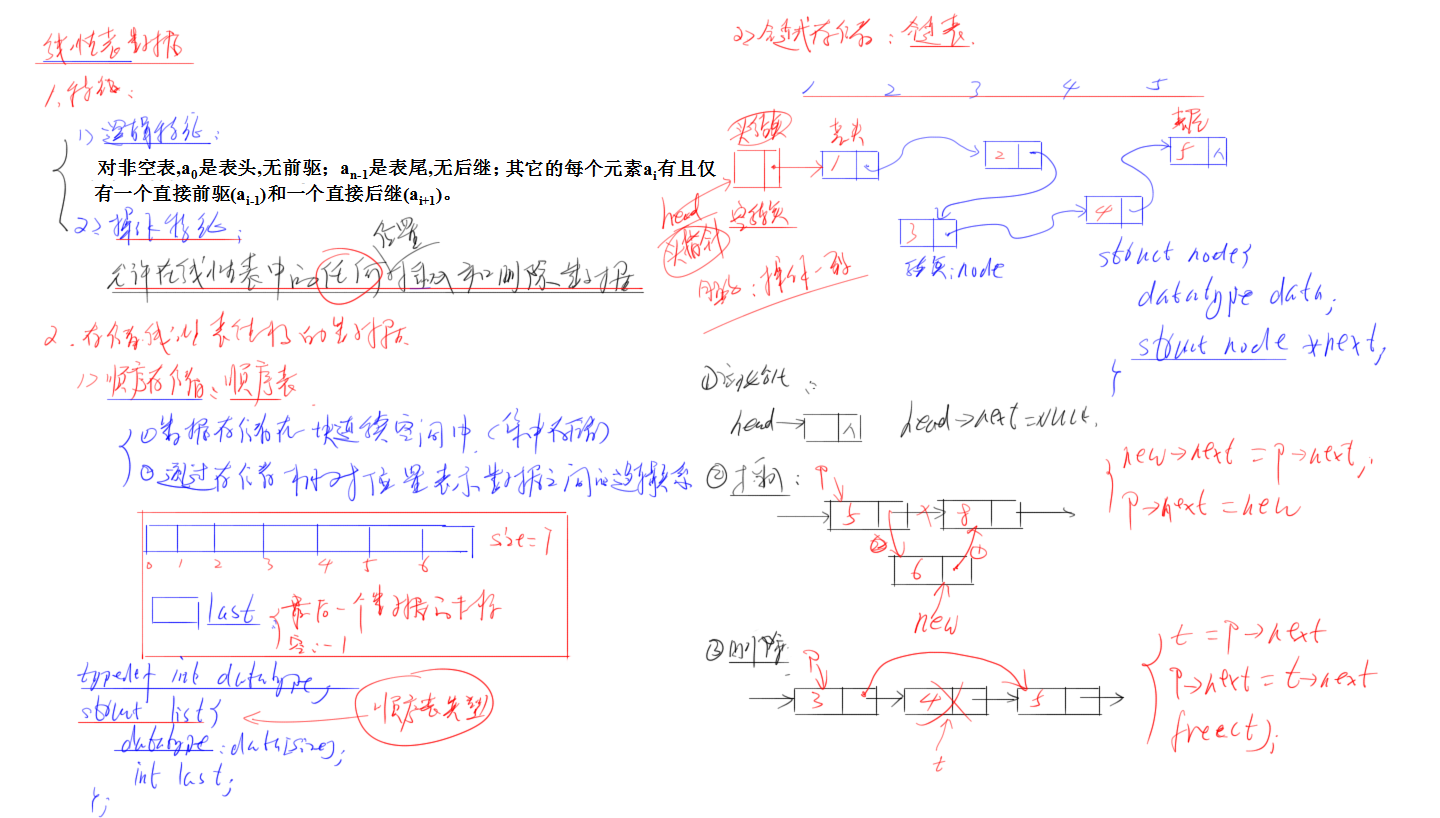 线性表数据
1.特征：
1>逻辑特征：
对非空表,a0是表头,无前驱；an-1是表尾,无后继；其它的每个元素ai有且仅
有一个直接前驱(ai-1)和一个直接后继(ai+1)。
2>操作特征：
位置
允许在线性表中的任何 插入和删除数据
2.存储线性表结构的数据
1>顺序存储：顺序表
①数据存储在一块连续空间中（集中存储）
②通过存储相对位置表示数据之间的逻辑联系
size=7
0 1 2 3 4 5 6
last 最后一个数据的下标
空:-1
typedef int datatype;
struct list{
datatype data[size];
int last;
};
顺序表类型
2>链式存储：链表
1 2 3 4 5
头结点 表头 表尾
1 2 5 ∧
head 空结点
头指针
3 4
结点:node
操作一致
struct node{
datatype data;
struct node *next;
}
①初始化：
head→ ∧ head→next=NULL.
②插入： P
5 8
② ①
6
new
new→next=p→next;
p→next=new
③删除 P
3 4 5
t
t=p→next
p→next=t→next
free(t);